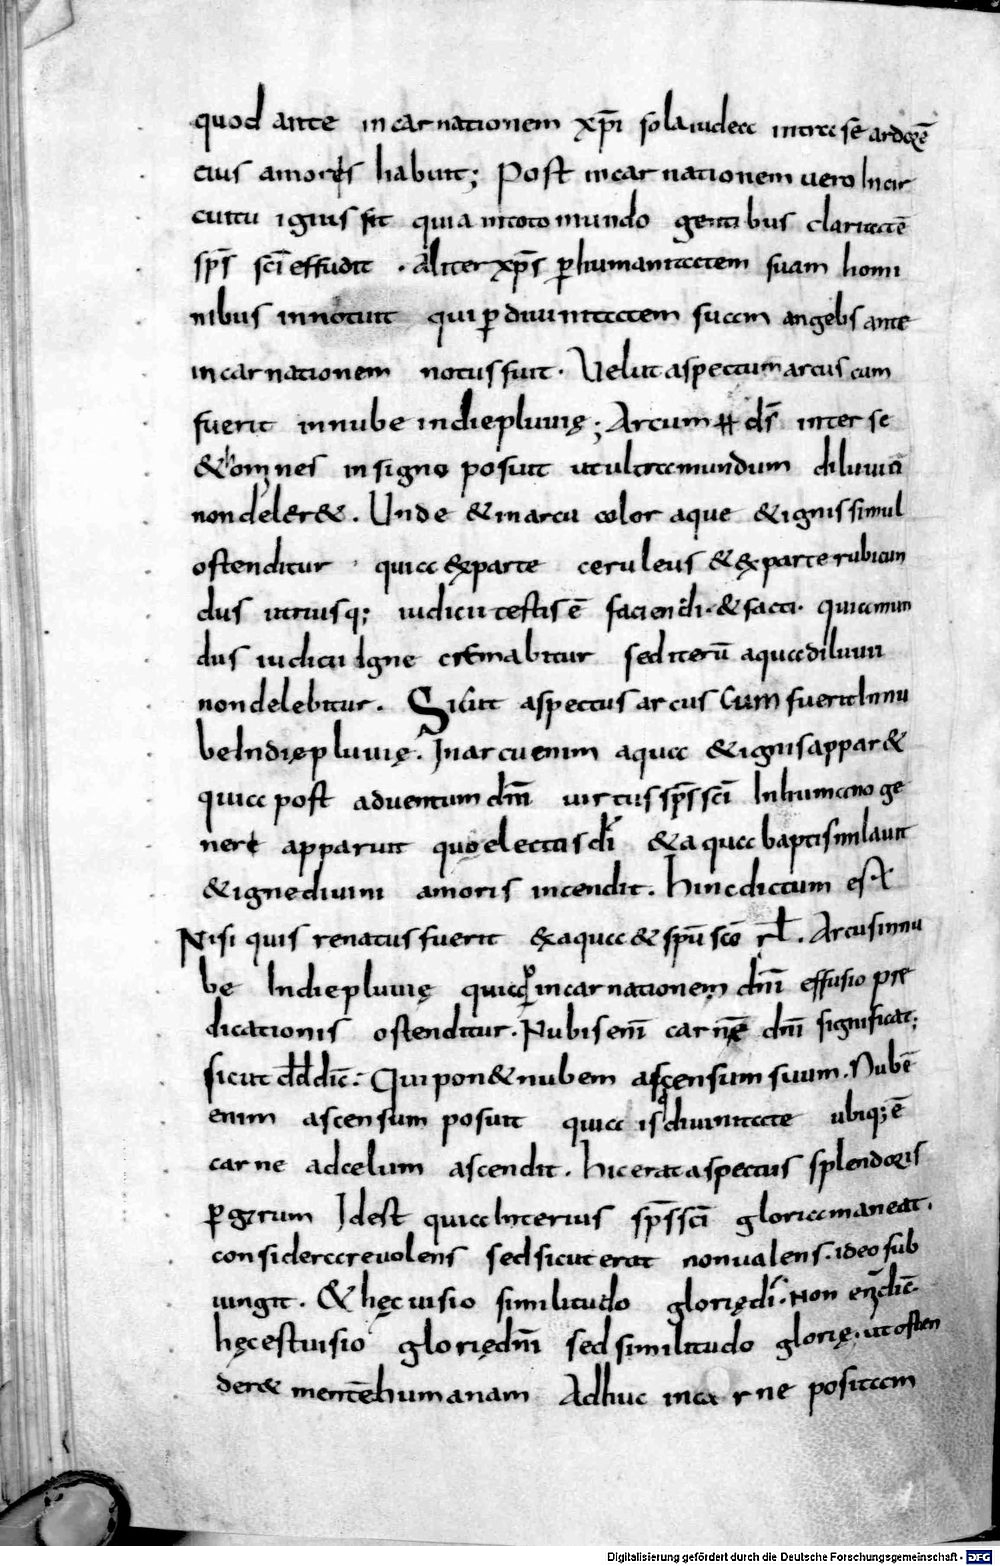 quod ante incarnationem xp̄i sola iudea intra se ardorē
eius amoris habuit; Post incarnationem uero incir
cuitu ignis fit quia intoto mundo gentibus claritatē
sp̄s sc̄i effudit . Aliter xp̄s ꝑhumanitatem suam homi
nibus innotuit qui ꝑ diuinitatem suam angelis ante
incarnationem notus fuit. Uelut aspectum arcus cum
fuerit innube indiepluuię; Arcum ds̄ inter se
& homnes insigno posuit utultra mundum diluuii
non deler&. Unde & inarcu color aque & ignis simul
ostenditur quia exparte ceruleus & exparte rubicun
dus utriusq; iudicii testis ē faciendi. & facti. quia mun
dus iudicii igne cremabitur sed iterū aqua diluuii
non delebitur. Sicut aspectus arcus Cum fuerit Innu
be Indię pluuię. In arcu enim aqua & ignis appar&
quia post aduentum dn̄i uirtus sp̄s sc̄i Inhumano ge
nere apparuit quo electus di & aqua baptismi lauit
& igne diuini amoris incendit. Hinc dictum est
Nisi quis renatus fuerit ex aqua & spū sc̄o rł. Arcus innu
be Indie pluuię quia ꝑ incarnationem dn̄i effusio pre
dicationis ostenditur. Nubis eni̅ carnē dn̄i significat;
sicut dd̄ dic̄. Qui pon& nubem ascensum suum. Nubē
enim ascensum posuit quia is q diuinitate ubiq; ē
carne adcelum ascendit. hic erat aspectus splendoris
ꝑ girum Idest quia Interius sp̄s sc̄i gloria maneat.
considerare uolens sed sicut erat non ualens. ideo sub
iungit. & hęc uisio similitudo glorię di. Non eni̅ dic̄.
hęc est uisio glorię dn̄i sed similitudo glorię. ut osten
der& mentē humanam Adhuc in carne positam
Digitalisierung gefördert durch die Deutsche Forschungsgemeinschaft - DFG